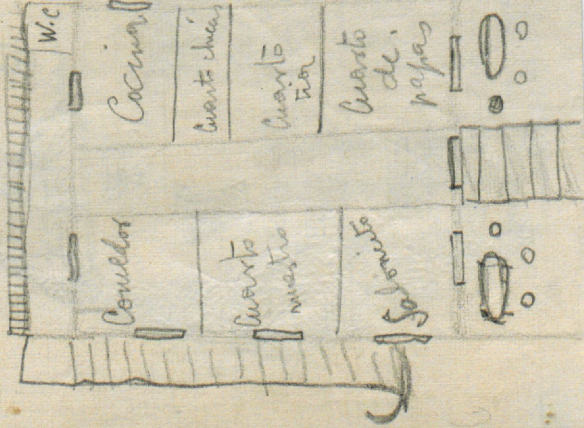 W.C
Cocina
Cuarto chicas
Cuarto
tia
Cuarto
de
papas
Comedor
Cuarto
nuestro
Saloncito